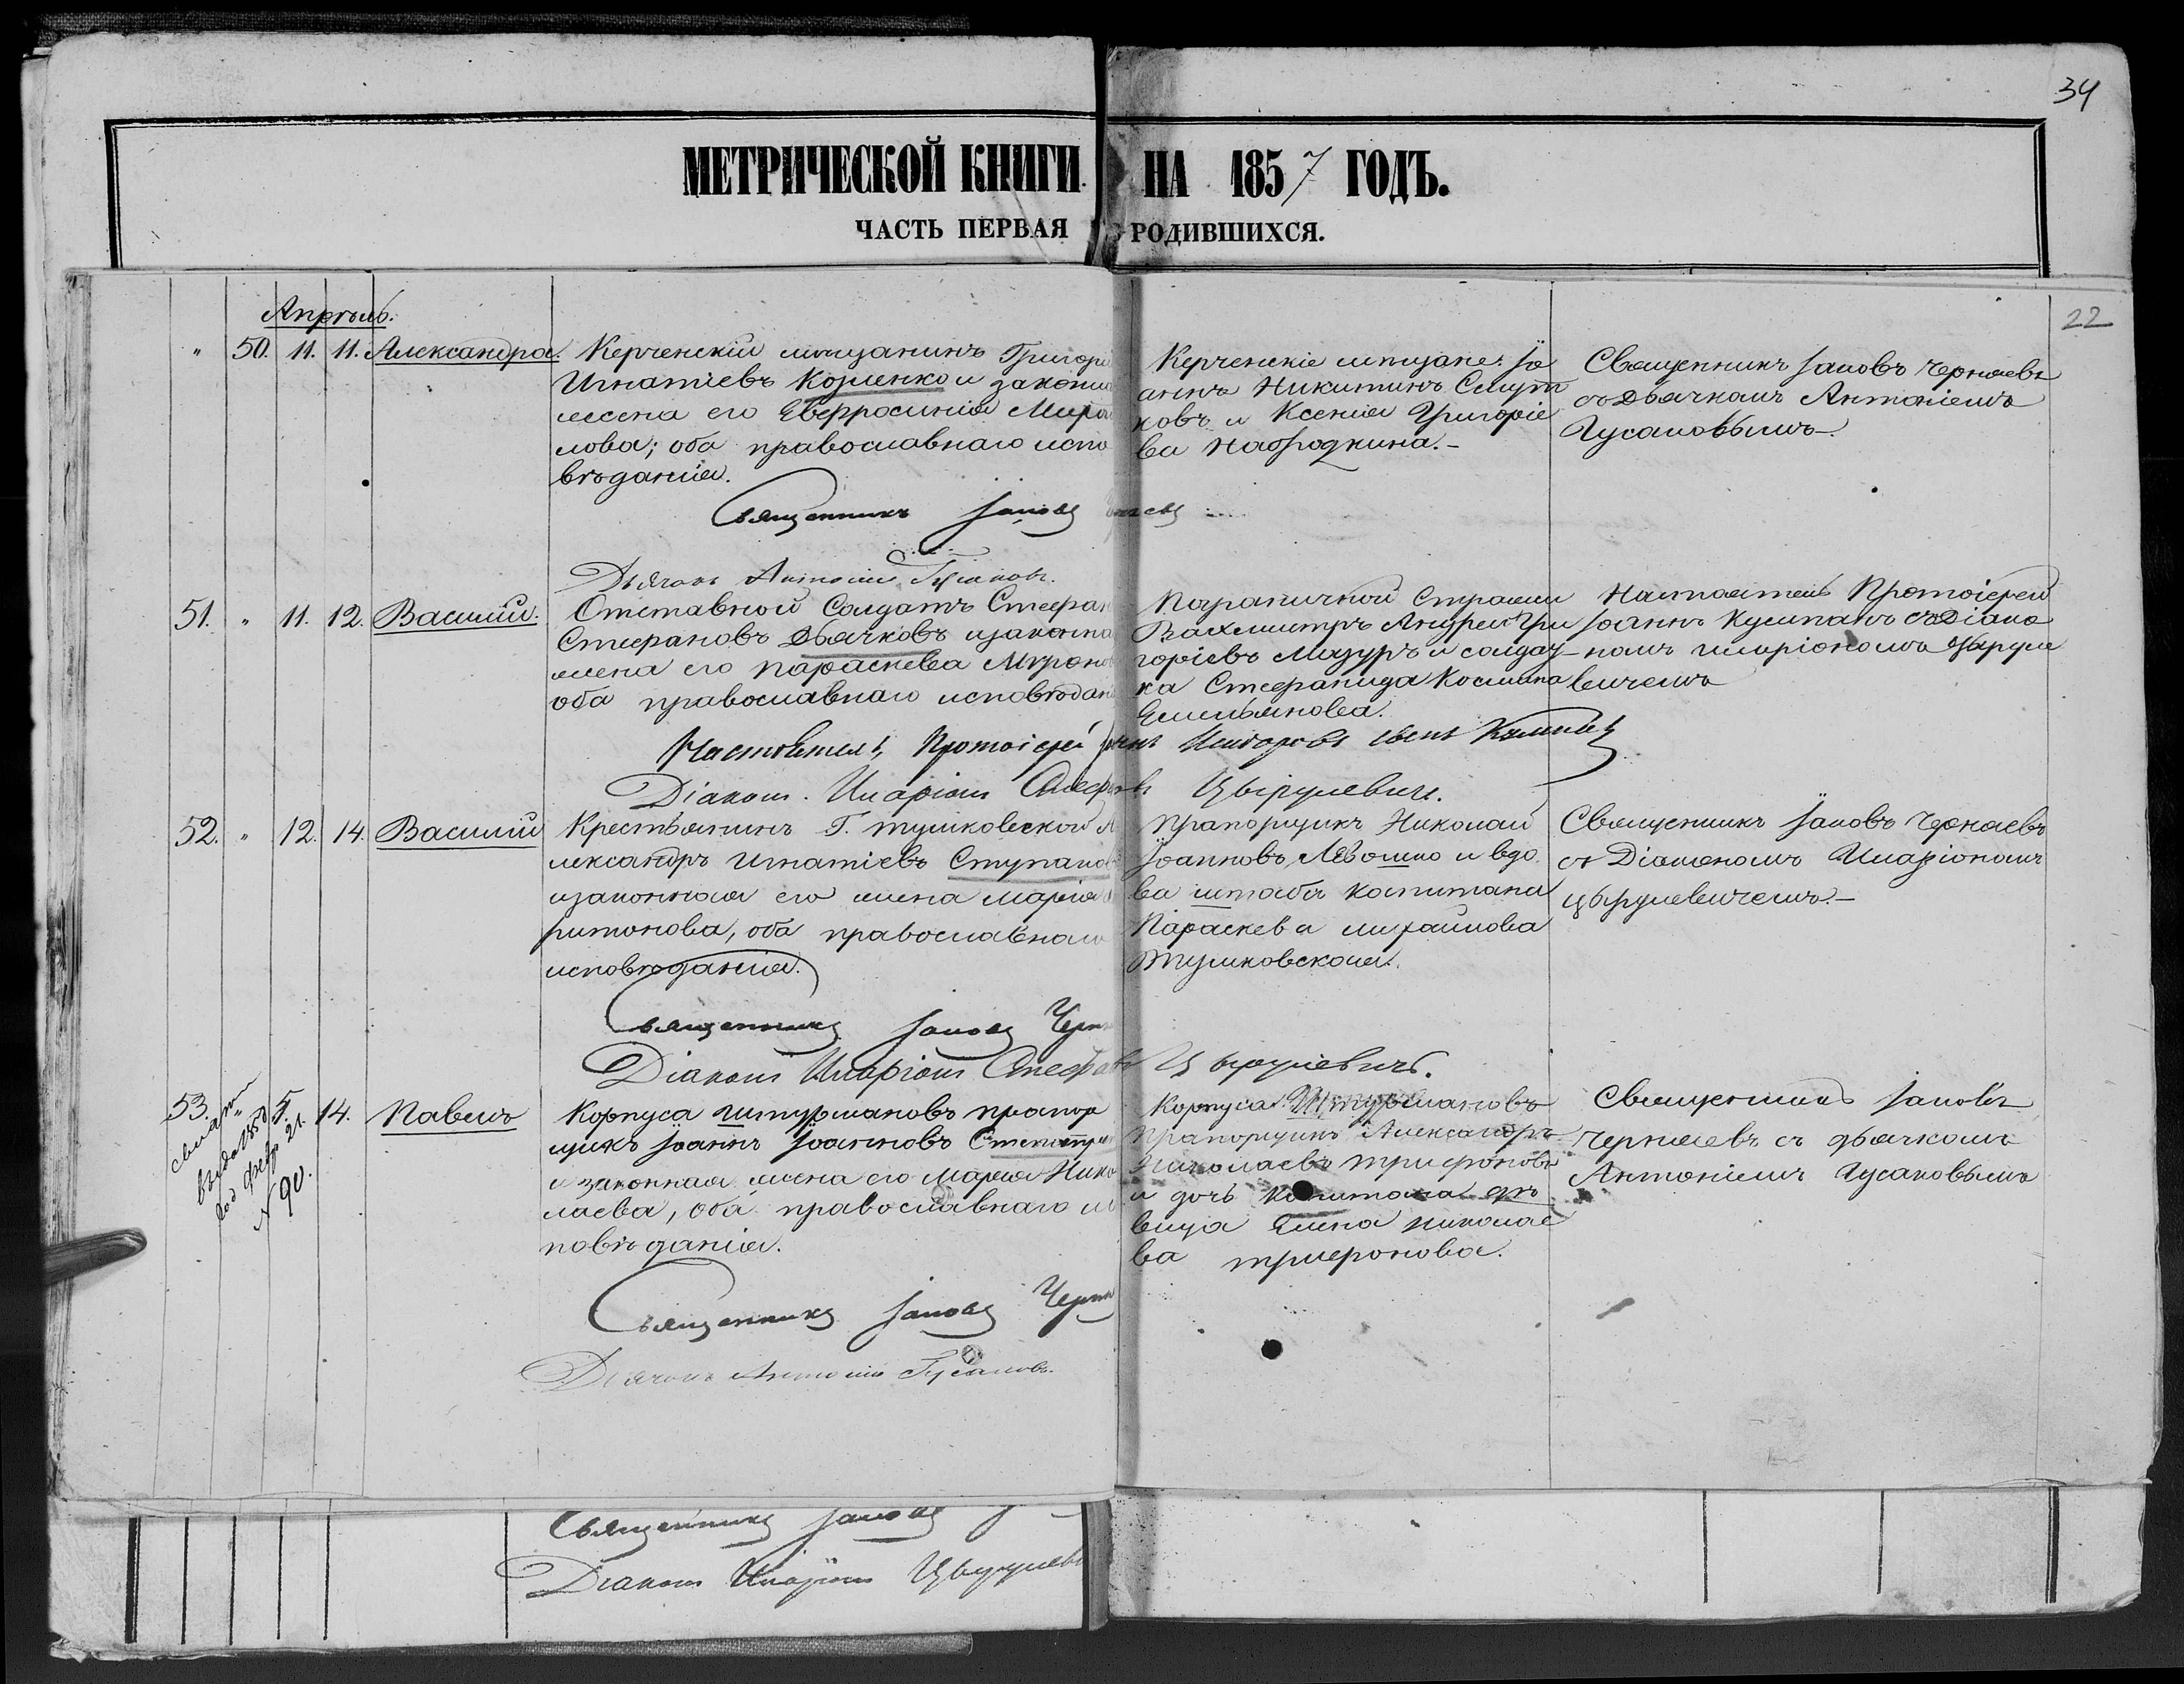 34
МЕТРИЧЕСКОЙ КНИГИ НА 1857 ГОДЪ.
ЧАСТЬ ПЕРВАЯ РОДИВШИХСЯ.
22
Апрѣль.
" 50. 11. 11. Александра.
Керченскій мѣщанинъ Григорі
Игнатіевъ Козленко и законна
жена его Евфросинія
лова; оба православнаго испо
вѣданія.
Керченскіе мѣщане: Іо
аннъ Никитинъ
ковъ и Ксенія Григоріе
ва Набродкина.-
Священникъ Іаковъ Черняевъ
съ дьячкомъ Антоніемъ
Гусаковымъ-.
Священникъ Іаковъ
Дьячокъ Антоній Гусаковъ.
51. " 11. 12. Василій.
Отставной Солдатъ Стефан
Стефановъ Дьячковъ и законна
жена его Параскева Миронов
оба православнаго исповѣдані
Пограничной Стражи
Вахмистръ Андрей Гри
горіевъ Мазуръ и солдат
ка Стефанида Космина
Емельянова.
Настоятель Протоіерей
Іоаннъ съ Діако
номъ Иларіономъ Цыруле
вичемъ
Настоятель, Протоіерей
Діаконъ Иларіонъ Стефановъ Цырулевичъ.
52. " 12. 14. Василій
Крестьянинъ Г. Тушковской А
лександръ Игнатіевъ Ступаков
и законная его жена Марія
ритонова, оба православнаго
исповѣданія.
Прапорщикъ Николай
Іоанновъ Левошко и вдо
ва штабъ капитана
Параскева Михаилова
Тушковская.
Священникъ Іаковъ Черняевъ
съ Діакономъ Иларіономъ
Цырулевичемъ.-
Священникъ Іаковъ Черня
Діаконъ Иларіонъ Стефановъ Цырулевичъ.
53. " 5. 14. Павелъ
90.
Корпуса Штурмановъ прапор
щикъ Іоаннъ Іоанновъ
и законная жена его Марія Нико
лаева, оба православнаго ис
повѣданія.
Корпуса Штурмановъ
прапорщикъ Александръ
Николаевъ Трифоновъ
и дочь капитана дѣ
вица Елена Николае
ва Трифонова.
Священникъ Іаковъ
Черняевъ съ дьячкомъ
Антоніемъ Гусаковымъ
Священникъ Іаковъ Черня
Дьячокъ Антоній Гусаковъ.
Священникъ Іаковъ
Діаконъ Иларіонъ Цырулев